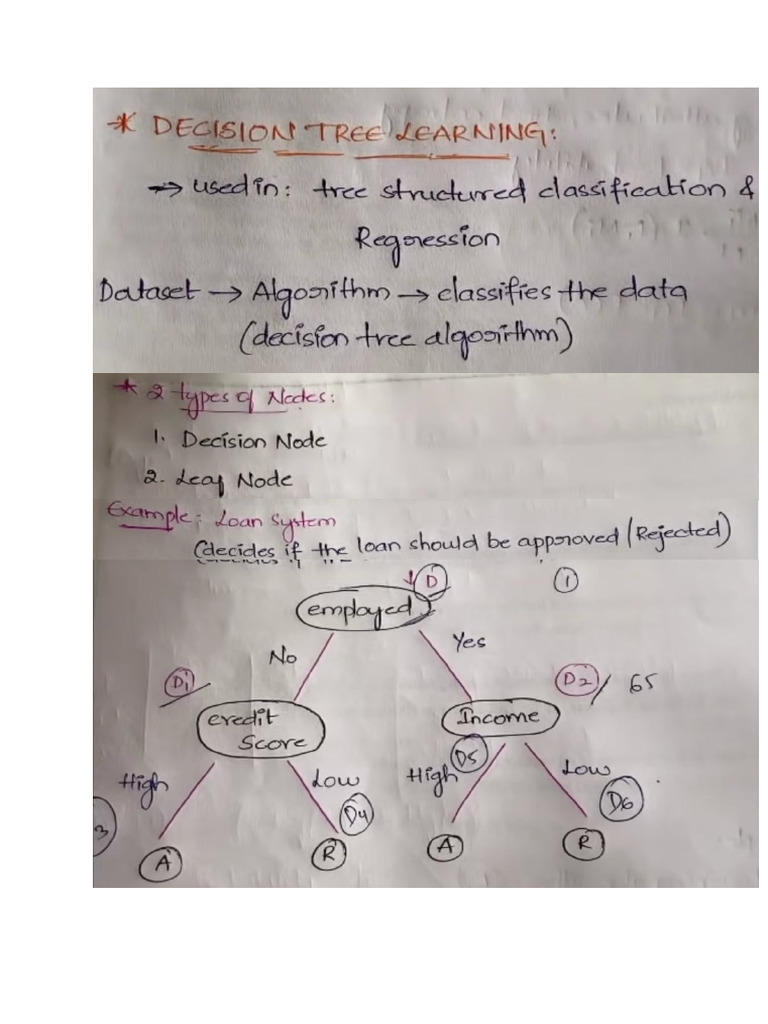 * DECISION TREE LEARNING:
→ used in: tree structured classification &
Regression
Dataset → Algorithm → classifies the data
(decision tree algorithm)
* 2 types of Nodes:
1. Decision Node
2. Leaf Node
Example: Loan system
(decides if the loan should be approved / Rejected)
D
1
employed
No
Yes
D1
D2 / 65
credit
Score
Income
High
Low
High
D5
Low
3
D4
D6
A
R
A
R